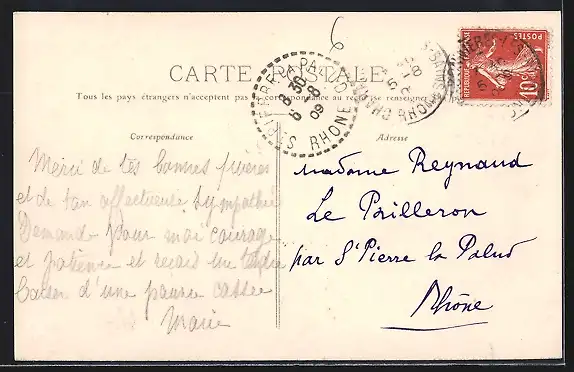 CARTE POSTALE
Tous les pays étrangers n'acceptent pas la correspondance au recto se renseigner
Correspondance
Adresse
POSTES
REPUBLIQUE FRANÇAISE
10c
ST PIERRE LA PALUD
8 30
6 - 8
09
RHONE
6
Merci de tes bonnes prières
et de ton affectueuse sympathie
Demande pour moi courage
et patience et reçois un tendre
baiser d'une pauvre cassée
Marie
Madame Reynaud
Le Poilleron
par St Pierre la Palud
Rhône